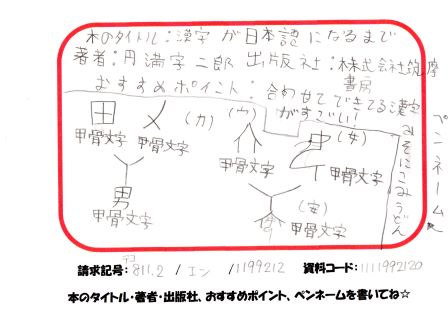 本のタイトル：漢字が日本語になるまで
著者：円満字二郎 出版社：株式会社筑摩
書房
おすすめポイント：合わせてできてる漢字
がすごい！
田 メ (力) (宀) (女)
甲骨文字 甲骨文字 甲骨文字 甲骨文字
男
甲骨文字
(安)
甲骨文字
ペンネーム
みそにこみうどん
請求記号：811.2 / エン / 1199212 資料コード：1111992120
本のタイトル・著者・出版社、おすすめポイント、ペンネームを書いてね☆